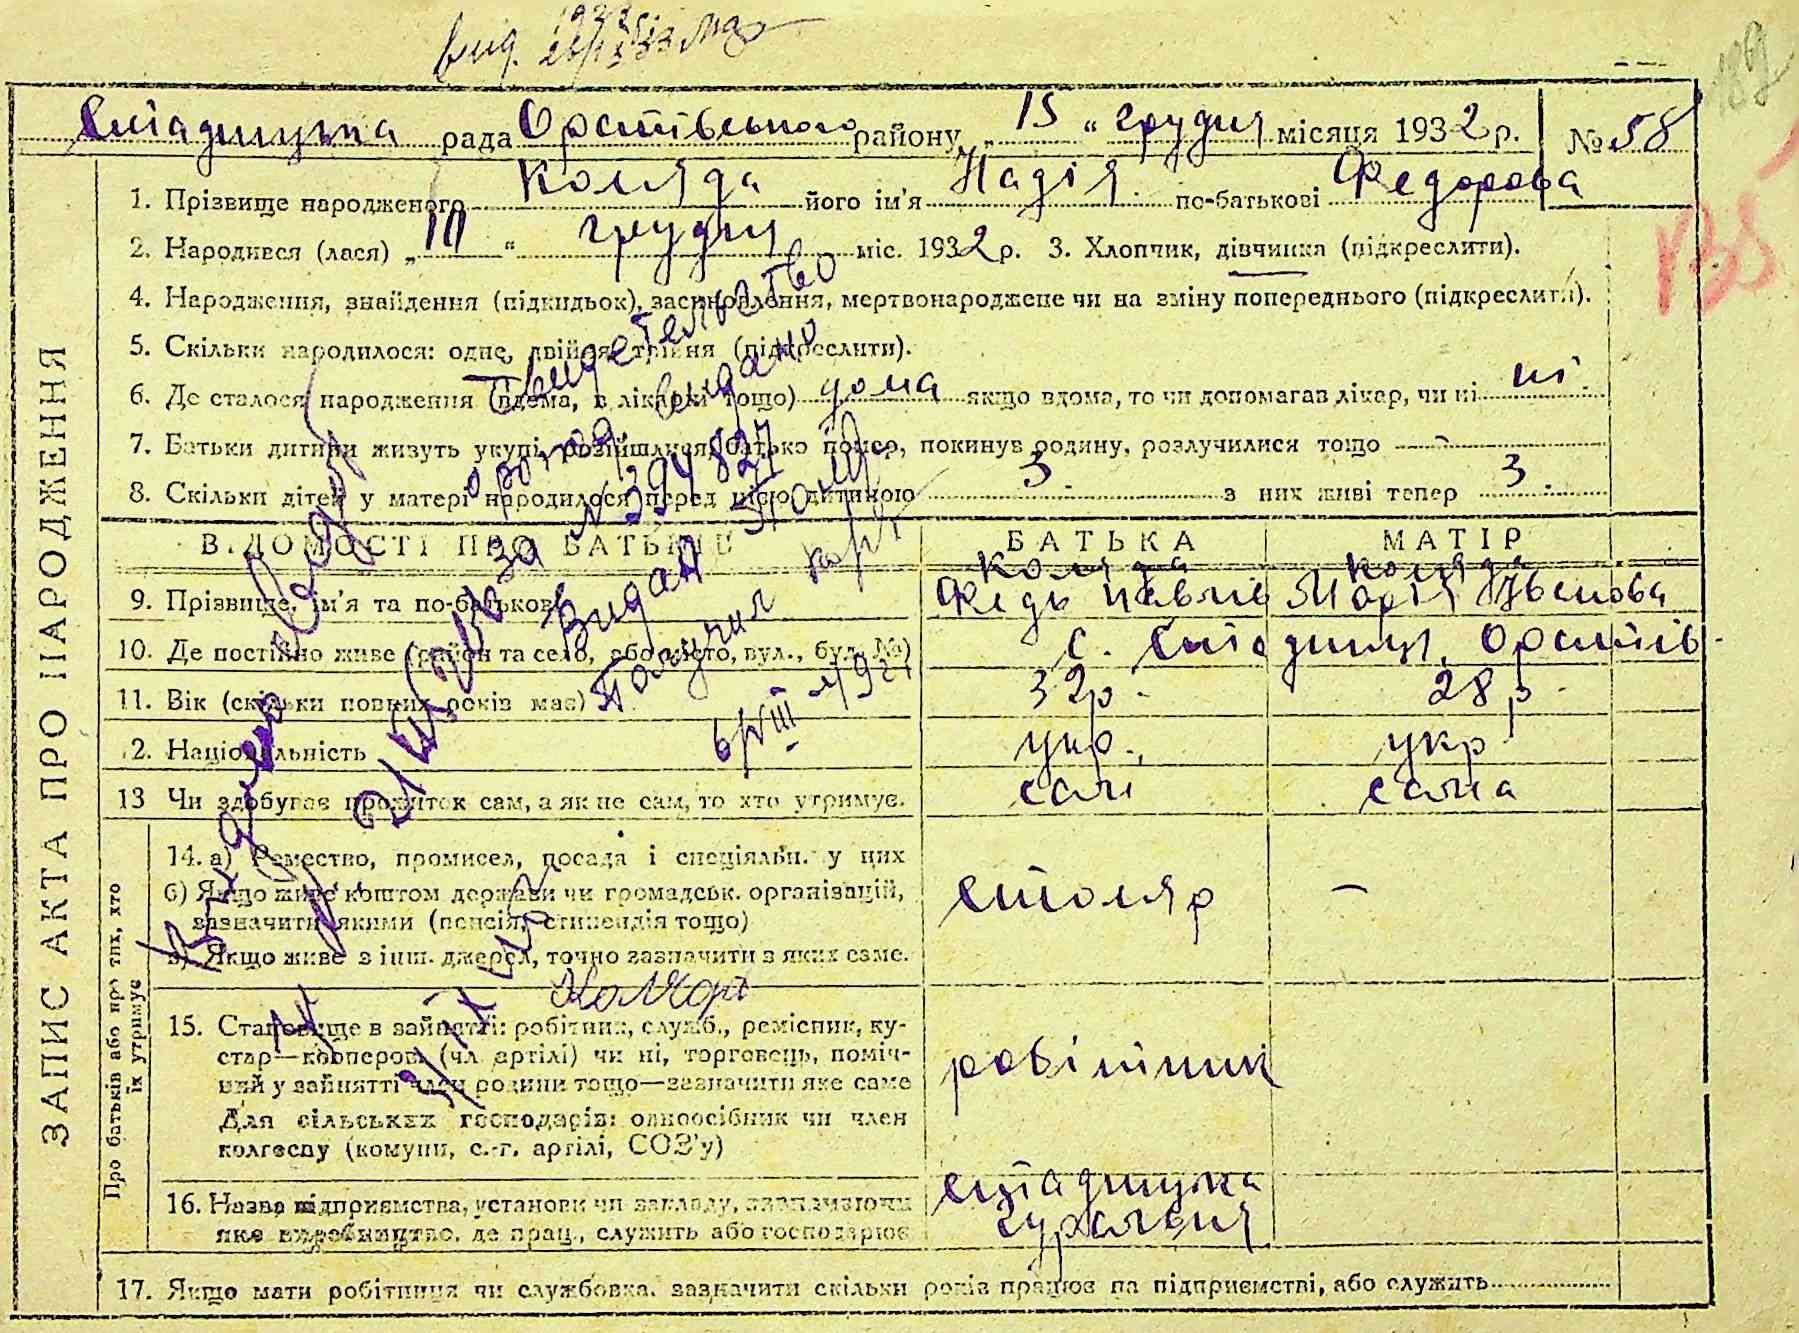 вид.
189
Стадницька рада Оратівського району „ 15 “ грудня місяця 1932 р. № 58
1. Прізвище народженого Коляда його ім'я Надія по-батькові Федорова
135
2. Народився (лася) „ 10 “ грудня міс. 1932 р. 3. Хлопчик, дівчинка (підкреслити).
4. Народження, знайдення (підкидьок), засиновлення, мертвонароджене чи на зміну попереднього (підкреслити).
5. Скільки народилося: одне, двійня, трійня (підкреслити).
6. Де сталося народження (вдома, в лікарні тощо) дома якщо вдома, то чи допомагав лікар, чи ні ні
7. Батьки дитини живуть укупі, розійшлися, батько помер, покинув родину, розлучилися тощо -
8. Скільки дітей у матері народилося перед цією дитиною 3. з них живі тепер 3.
ВІДОМОСТІ ПРО БАТЬКІВ БАТЬКА МАТІР
9. Прізвище, ім'я та по-батькові Коляда Федь Павлів Коляда Марія Івенова
10. Де постійно живе (район та село, або місто, вул., буд. №) с. Стадниця, Оратів-
11. Вік (скільки повних років має) 32 р. 28 р.
12. Національність укр. укр
13 Чи здобуває прожиток сам, а як не сам, то хто утримує. сам сама
ЗАПИС АКТА ПРО НАРОДЖЕННЯ
Про батьків або про тих, хто їх утримує
14. а) Ремество, промисел, посада і спеціяльн. у цих столяр -
б) Якщо живе коштом держави чи громадськ. організацій,
зазначити якими (пенсія, стипендія тощо)
в) Якщо живе з інш. джерел, точно зазначити з яких саме.
15. Становище в зайнятті: робітник, служб., ремісник, ку-
стар—коопероп (чл. артілі) чи ні, торговець, поміч-
ний у зайнятті член родини тощо—зазначити яке саме робітник
Для сільських господарів: одноосібник чи член
колгоспу (комуни, с.-г. артілі, СОЗ'у)
16. Назва підприємства, установи чи закладу, зазначаючи Стадницка
яке виробництво, де прац., служить або господарює
17. Якщо мати робітниця чи службовка, зазначити скільки років працює на підприємстві, або служить
Свидетельство
повторно выдано
за № 394827
Видал
Получил
Коляда